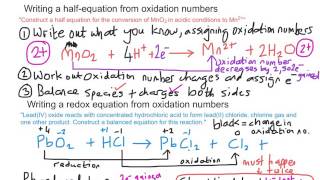 Writing a half-equation from oxidation numbers
"Construct a half equation for the conversion of MnO₂ in acidic conditions to Mn²⁺"
① Write out what you know, assigning oxidation numbers
2+ MnO₂ + 4H⁺ + 2e⁻ → Mn²⁺ + 2H₂O 2+
oxidation number
decreases by 2, so 2e⁻
② Work out oxidation number changes and assign e⁻ gained
③ Balance species + charges both sides
Writing a redox equation from oxidation numbers
"Lead(IV) oxide reacts with concentrated hydrochloric acid to form lead(II) chloride, chlorine gas and
one other product. Construct a balanced equation for this reaction."
blank = change in
oxidation no.
+4 -1 +2 -1 0
PbO₂ + HCl → PbCl₂ + Cl₂ +
reduction oxidation
must happen
2e⁻ gained